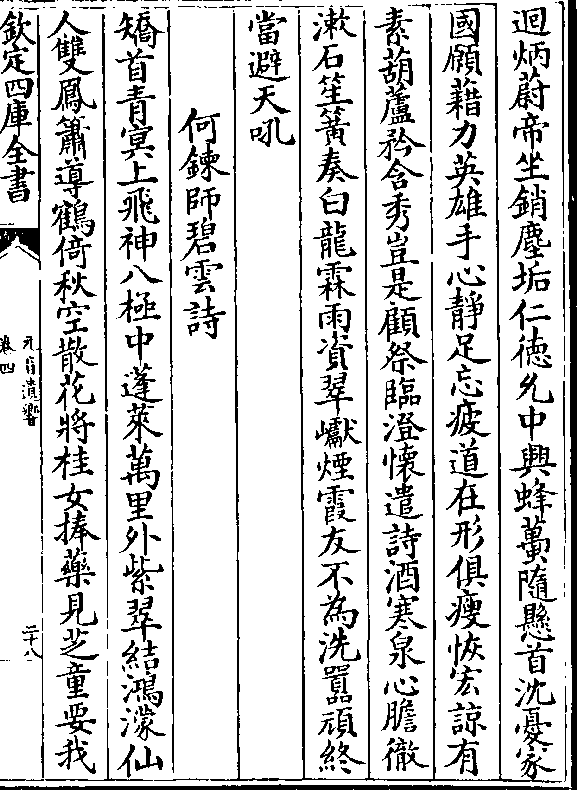 迴炳蔚帝坐銷塵垢仁徳允中興蜂蠆隨懸首沈憂家
國願藉力英雄手心靜足忘疲道在形俱瘦恢宏諒有
素葫蘆矜含秀豈是顧祭臨澄懷遣詩酒寒泉心膽徹
漱石笙簧奏白龍霖雨資翠巘煙霞友不為洗囂頑終
當避天吼
何鍊師碧雲詩
矯首青冥上飛神八極中蓬萊萬里外紫翠結鴻濛仙
人雙鳳簫導鶴倚秋空散花將桂女捧藥見芝童要我
欽定四庫全書
元音遺響
卷四
二十八